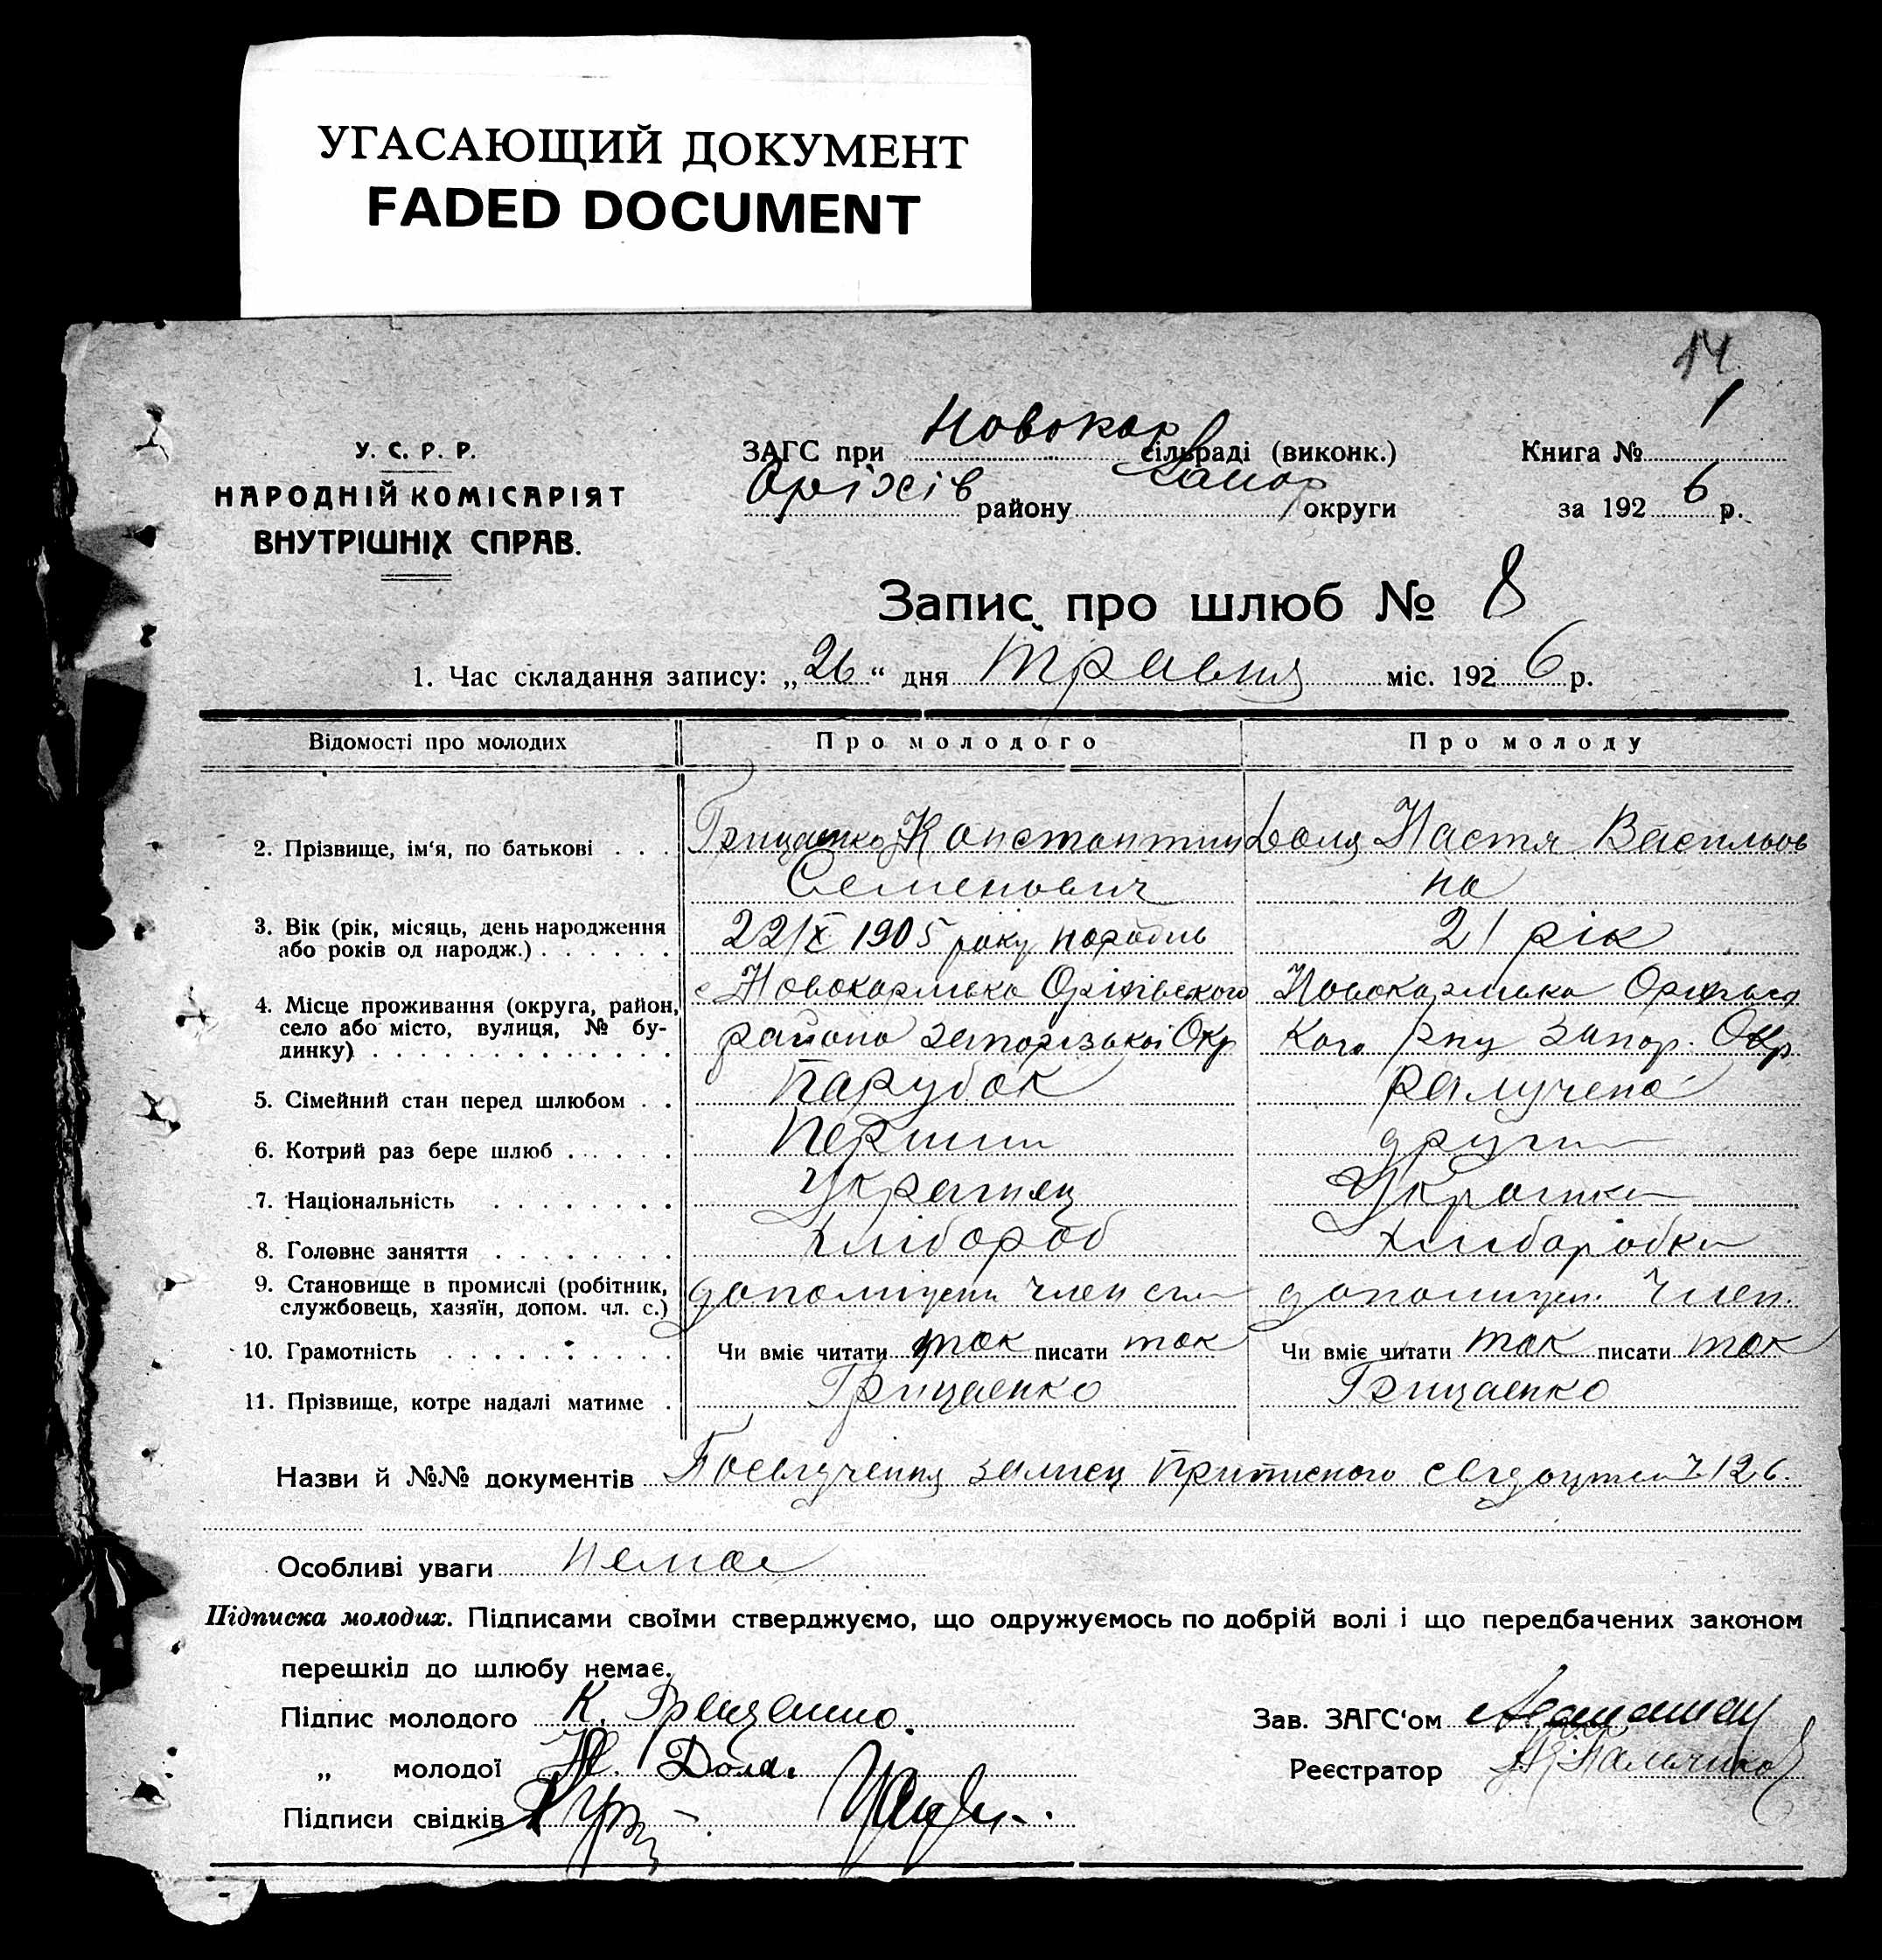 УГАСАЮЩИЙ ДОКУМЕНТ
FADED DOCUMENT
14
У. С. Р. Р.
НАРОДНІЙ КОМІСАРІЯТ
ВНУТРІШНІХ СПРАВ.
ЗАГС при Новокар сільраді (виконк.)
Оріхів району Запор округи
Книга № 1
за 1926 р.
Запис про шлюб № 8
1. Час складання запису: „26“ дня травня міс. 1926 р.
Відомості про молодих
Про молодого
Про молоду
2. Прізвище, ім‘я, по батькові . . .
Грицаенко Константин
Семенович
Доля Настя Васильов
на
3. Вік (рік, місяць, день народження
або років од народж.) . . . . . .
22/X 1905 року
21 рік
4. Місце проживання (округа, район,
село або місто, вулиця, № бу-
динку) . . . . . . . . . . . . .
с Новокарлівка Оріхівского
району Запорізької Окр
Новокарлівка Оріхівсь
кого рну Запор. Окр
5. Сімейний стан перед шлюбом . .
Парубок
разлучена
6. Котрий раз бере шлюб . . . . .
Перший
другий
7. Національність . . . . . . . .
Украинец
Украинка
8. Головне заняття . . . . . . . .
Хлібороб
Хлиборобка
9. Становище в промислі (робітник,
службовець, хазяїн, допом. чл. с.)
член
член.
10. Грамотність . . . . . . . . . .
Чи вміє читати так писати так
Чи вміє читати так писати так
11. Прізвище, котре надалі матиме .
Грицаенко
Грицаенко
Назви й №№ документів Посвідчення замісц приписного свидоцтва Ч 126.
Особливі уваги немае
Підписка молодих. Підписами своїми стверджуємо, що одружуємось по добрій волі і що передбачених законом
перешкід до шлюбу немає.
Підпис молодого К. Грицаенко.
„ молодої Н. Доля.
Підписи свідків
Зав. ЗАГС‘ом
Реєстратор